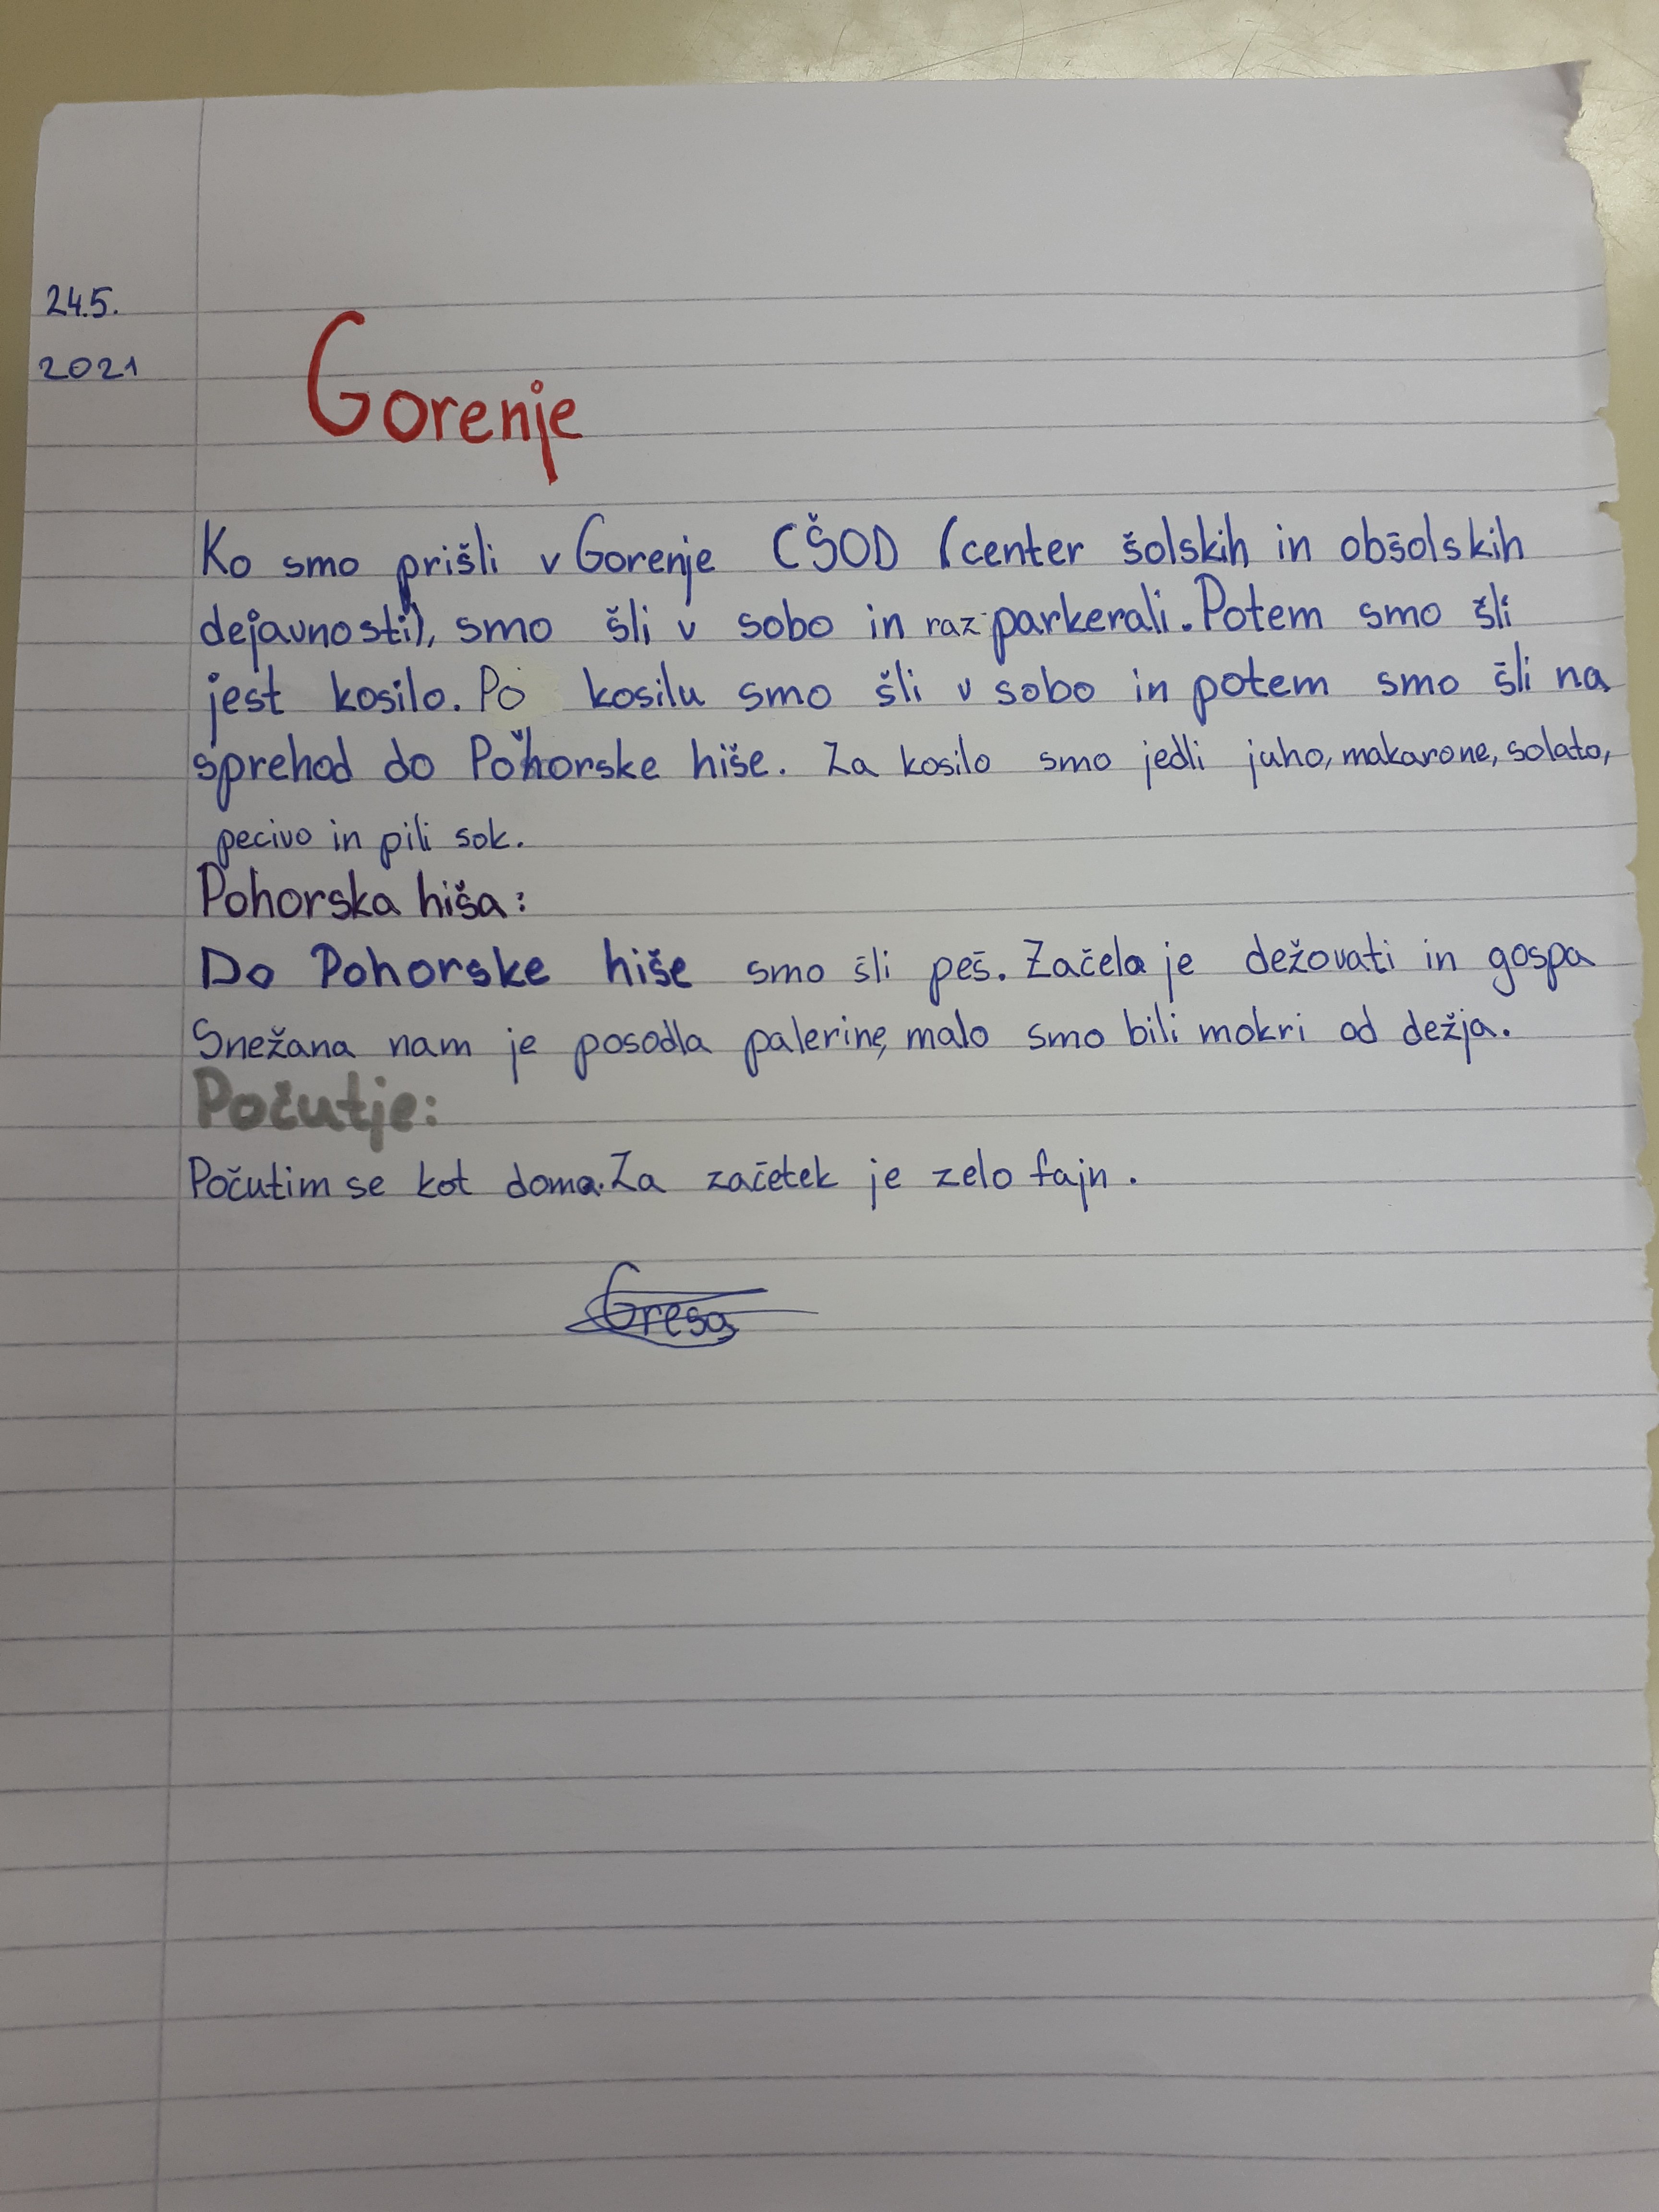 24.5.
2021
Gorenje
Ko smo prišli v Gorenje CŠOD (center šolskih in obšolskih
dejavnosti), smo šli v sobo in raz parkerali. Potem smo šli
jest kosilo. Po kosilu smo šli v sobo in potem smo šli na
sprehod do Pohorske hiše. Za kosilo smo jedli juho, makarone, solato,
pecivo in pili sok.
Pohorska hiša:
Do Pohorske hiše smo šli peš. Začela je dežovati in gospa
Snežana nam je posodla palerine, malo smo bili mokri od dežja.
Počutje:
Počutim se kot doma. Za začetek je zelo fajn.
Gresa